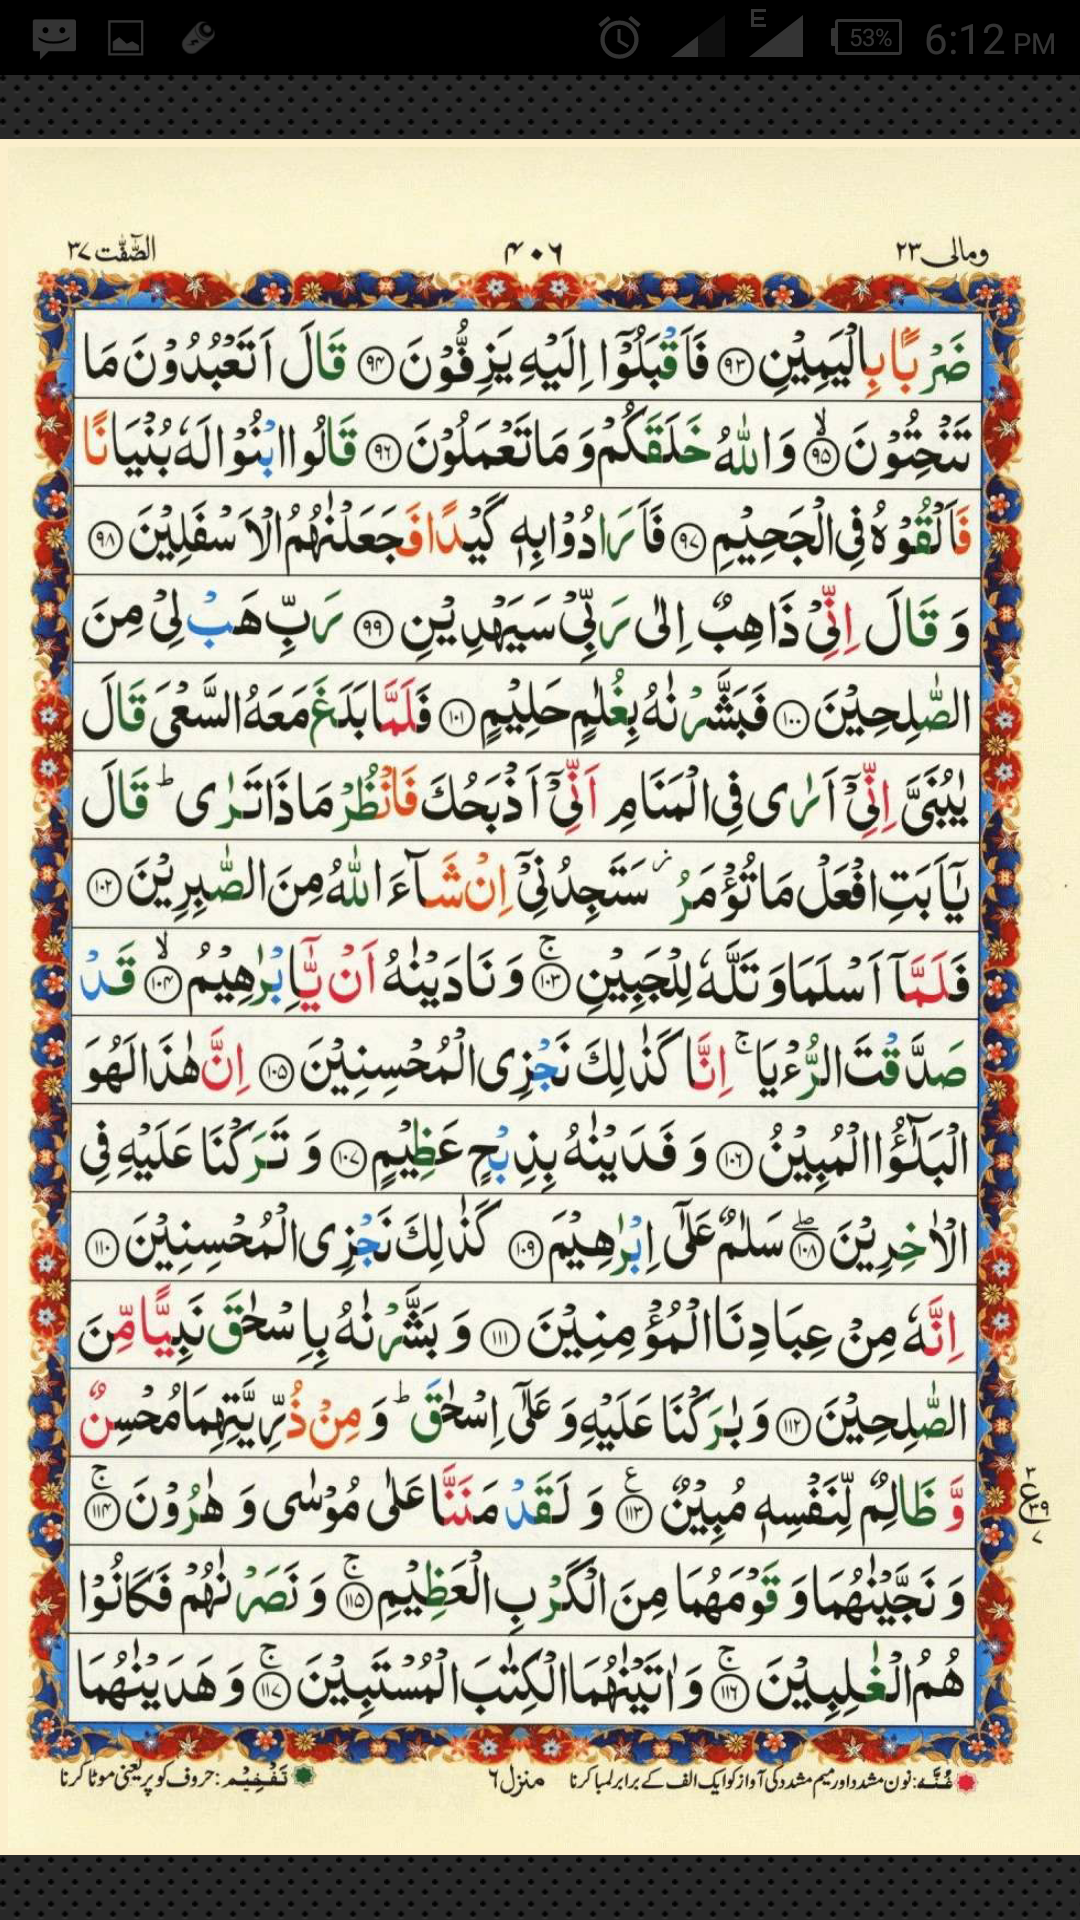 E 53% 6:12 PM
ومالی ٢٣ ۴۰۶ الصّٰٓفّٰت ٣٧
ضَرْبًۢا بِالْيَمِيْنِ ﴿۹۳﴾ فَاَقْبَلُوْۤا اِلَيْهِ يَزِفُّوْنَ ﴿۹۴﴾ قَالَ اَتَعْبُدُوْنَ مَا
تَنْحِتُوْنَ ۙ﴿۹۵﴾ وَاللّٰهُ خَلَقَكُمْ وَمَا تَعْمَلُوْنَ ﴿۹۶﴾ قَالُوا ابْنُوْا لَهٗ بُنْيَانًا
فَاَلْقُوْهُ فِي الْجَحِيْمِ ﴿۹۷﴾ فَاَرَادُوْا بِهٖ كَيْدًا فَجَعَلْنٰهُمُ الْاَسْفَلِيْنَ ﴿۹۸﴾
وَ قَالَ اِنِّيْ ذَاهِبٌ اِلٰى رَبِّيْ سَيَهْدِيْنِ ﴿۹۹﴾ رَبِّ هَبْ لِيْ مِنَ
الصّٰلِحِيْنَ ﴿۱۰۰﴾ فَبَشَّرْنٰهُ بِغُلٰمٍ حَلِيْمٍ ﴿۱۰۱﴾ فَلَمَّا بَلَغَ مَعَهُ السَّعْيَ قَالَ
يٰبُنَيَّ اِنِّيْۤ اَرٰى فِي الْمَنَامِ اَنِّيْۤ اَذْبَحُكَ فَانْظُرْ مَاذَا تَرٰى ؕ قَالَ
يٰۤاَبَتِ افْعَلْ مَا تُؤْمَرُ ؗ سَتَجِدُنِيْۤ اِنْ شَآءَ اللّٰهُ مِنَ الصّٰبِرِيْنَ ﴿۱۰۲﴾
فَلَمَّاۤ اَسْلَمَا وَتَلَّهٗ لِلْجَبِيْنِ ۚ﴿۱۰۳﴾ وَ نَادَيْنٰهُ اَنْ يّٰۤاِبْرٰهِيْمُ ۙ﴿۱۰۴﴾ قَدْ
صَدَّقْتَ الرُّءْيَا ۚ اِنَّا كَذٰلِكَ نَجْزِي الْمُحْسِنِيْنَ ﴿۱۰۵﴾ اِنَّ هٰذَا لَهُوَ
الْبَلٰٓؤُا الْمُبِيْنُ ﴿۱۰۶﴾ وَ فَدَيْنٰهُ بِذِبْحٍ عَظِيْمٍ ﴿۱۰۷﴾ وَ تَرَكْنَا عَلَيْهِ فِي
الْاٰخِرِيْنَ ۖ﴿۱۰۸﴾ سَلٰمٌ عَلٰۤى اِبْرٰهِيْمَ ﴿۱۰۹﴾ كَذٰلِكَ نَجْزِي الْمُحْسِنِيْنَ ﴿۱۱۰﴾
اِنَّهٗ مِنْ عِبَادِنَا الْمُؤْمِنِيْنَ ﴿۱۱۱﴾ وَ بَشَّرْنٰهُ بِاِسْحٰقَ نَبِيًّا مِّنَ
الصّٰلِحِيْنَ ﴿۱۱۲﴾ وَ بٰرَكْنَا عَلَيْهِ وَ عَلٰۤى اِسْحٰقَ ؕ وَ مِنْ ذُرِّيَّتِهِمَا مُحْسِنٌ
وَّ ظَالِمٌ لِّنَفْسِهٖ مُبِيْنٌ ﴿۱۱۳﴾ ع وَ لَقَدْ مَنَنَّا عَلٰى مُوْسٰى وَ هٰرُوْنَ ۚ﴿۱۱۴﴾
وَ نَجَّيْنٰهُمَا وَ قَوْمَهُمَا مِنَ الْكَرْبِ الْعَظِيْمِ ۚ﴿۱۱۵﴾ وَ نَصَرْنٰهُمْ فَكَانُوْا
هُمُ الْغٰلِبِيْنَ ۚ﴿۱۱۶﴾ وَ اٰتَيْنٰهُمَا الْكِتٰبَ الْمُسْتَبِيْنَ ۚ﴿۱۱۷﴾ وَ هَدَيْنٰهُمَا
٣ ع ٣٩ ٧
غُنَّہ: نون مشدد اور میم مشدد کی آواز کو ایک الف کے برابر لمبا کرنا منزل ٦ تَفْخِیْم: حروف کو پر یعنی موٹا کرنا